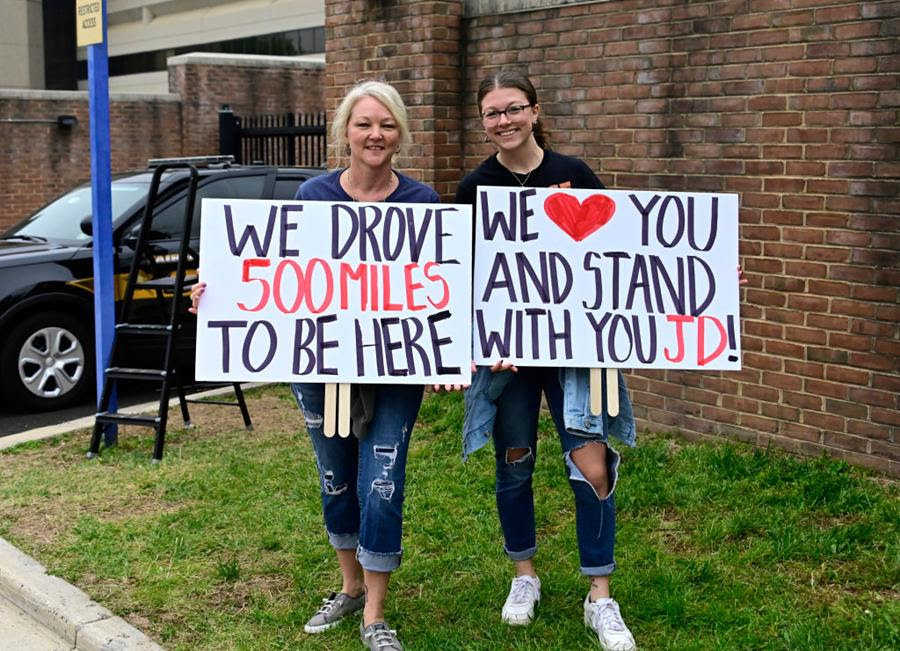 RESTRICTED
ACCESS
WE DROVE
500 MILES
TO BE HERE
WE ❤ YOU
AND STAND
WITH YOU JD!